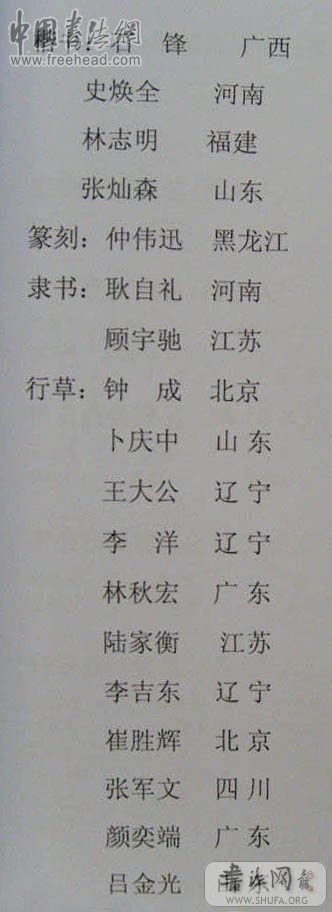 中国书法网
www.freehead.com
楷书： 锋 广西
史焕全 河南
林志明 福建
张灿森 山东
篆刻：仲伟迅 黑龙江
隶书：耿自礼 河南
顾宇驰 江苏
行草：钟 成 北京
卜庆中 山东
王大公 辽宁
李 洋 辽宁
林秋宏 广东
陆家衡 江苏
李吉东 辽宁
崔胜辉 北京
张军文 四川
颜奕端 广东
吕金光
书法网
www.SHUFA.ORG